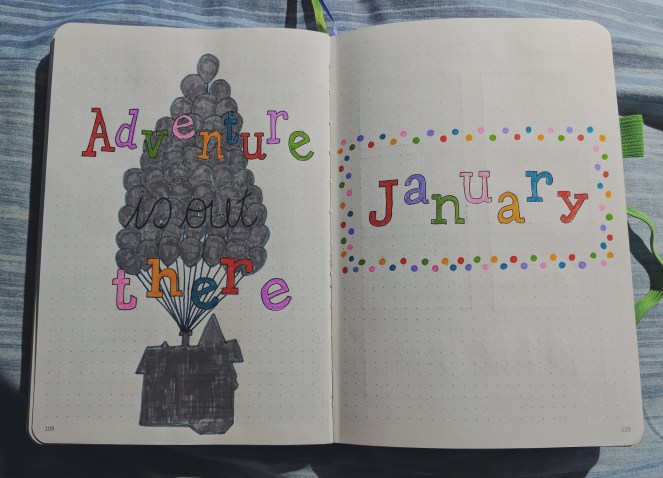 Adventure
is out
there
January
109